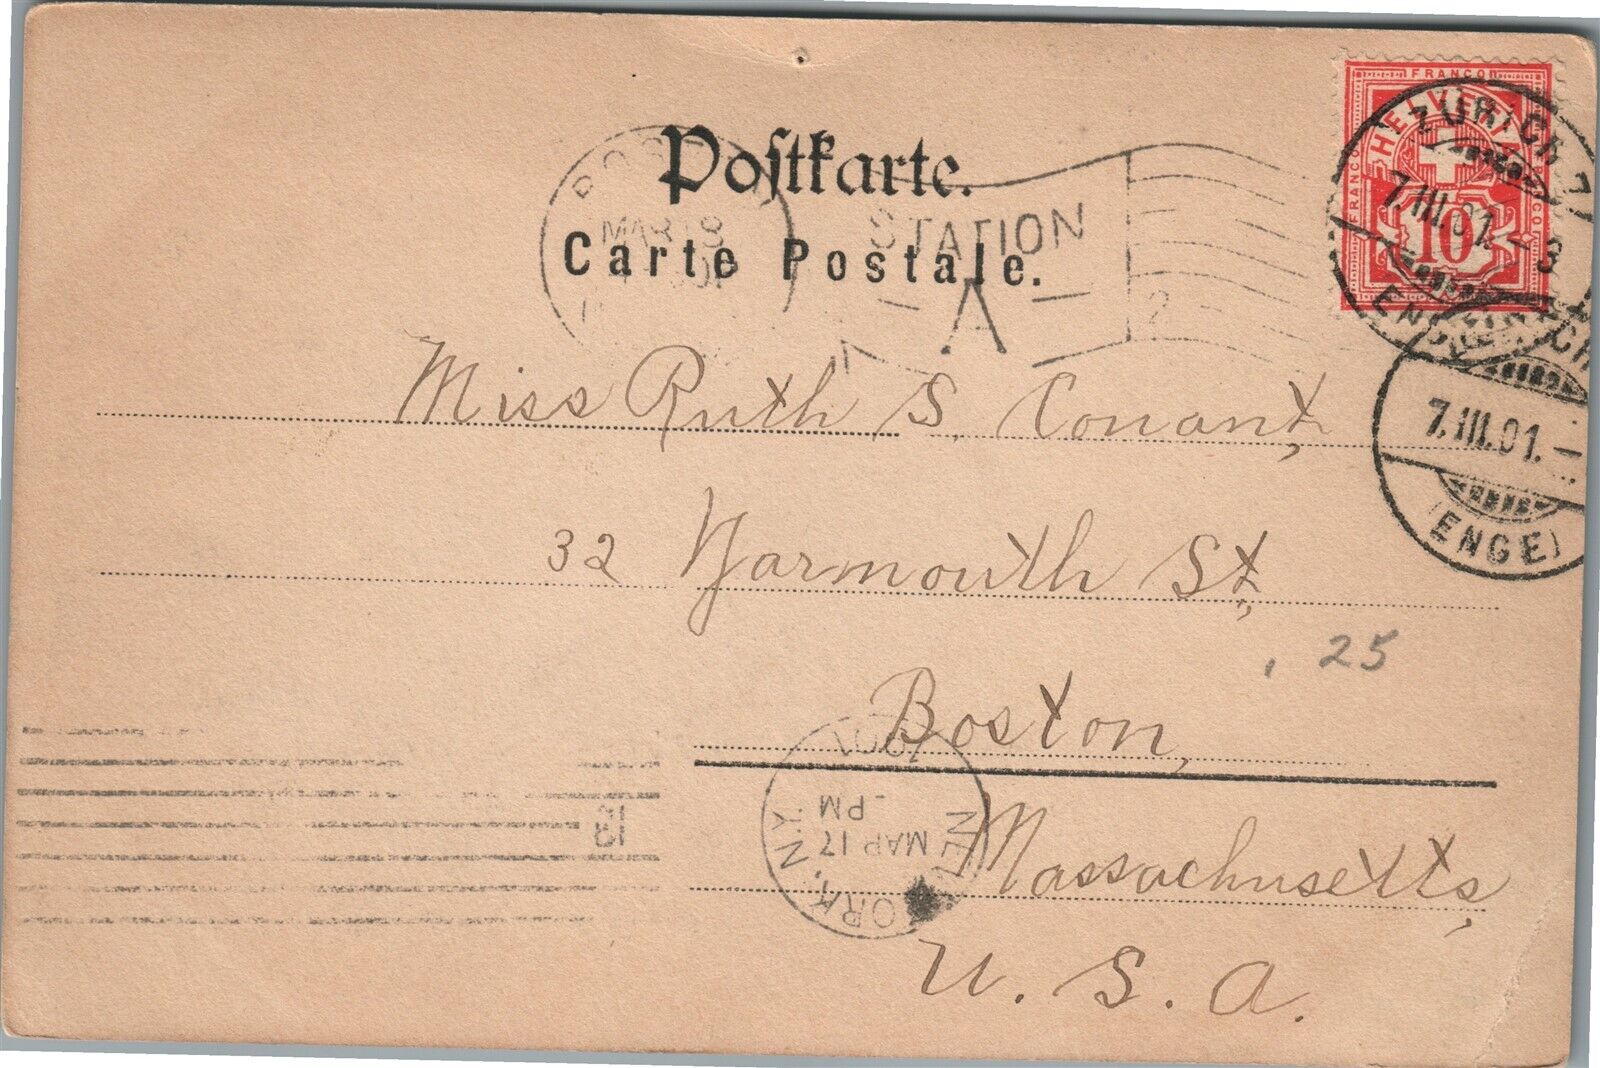 Postkarte.
Carte Postale.
FRANCO
HELVETIA
FRANCO
FRANCO
10
ZÜRICH
7.III.01.-3
ENGE
7.III.01.-
(ENGE)
BOSTON
MAR 18
STATION
A
2
Miss Ruth S. Conant,
32 Yarmouth St.,
. 25
Boston,
Massachusetts,
U. S. A.
NEW YORK, N.Y.
MAR 17
-PM
1901